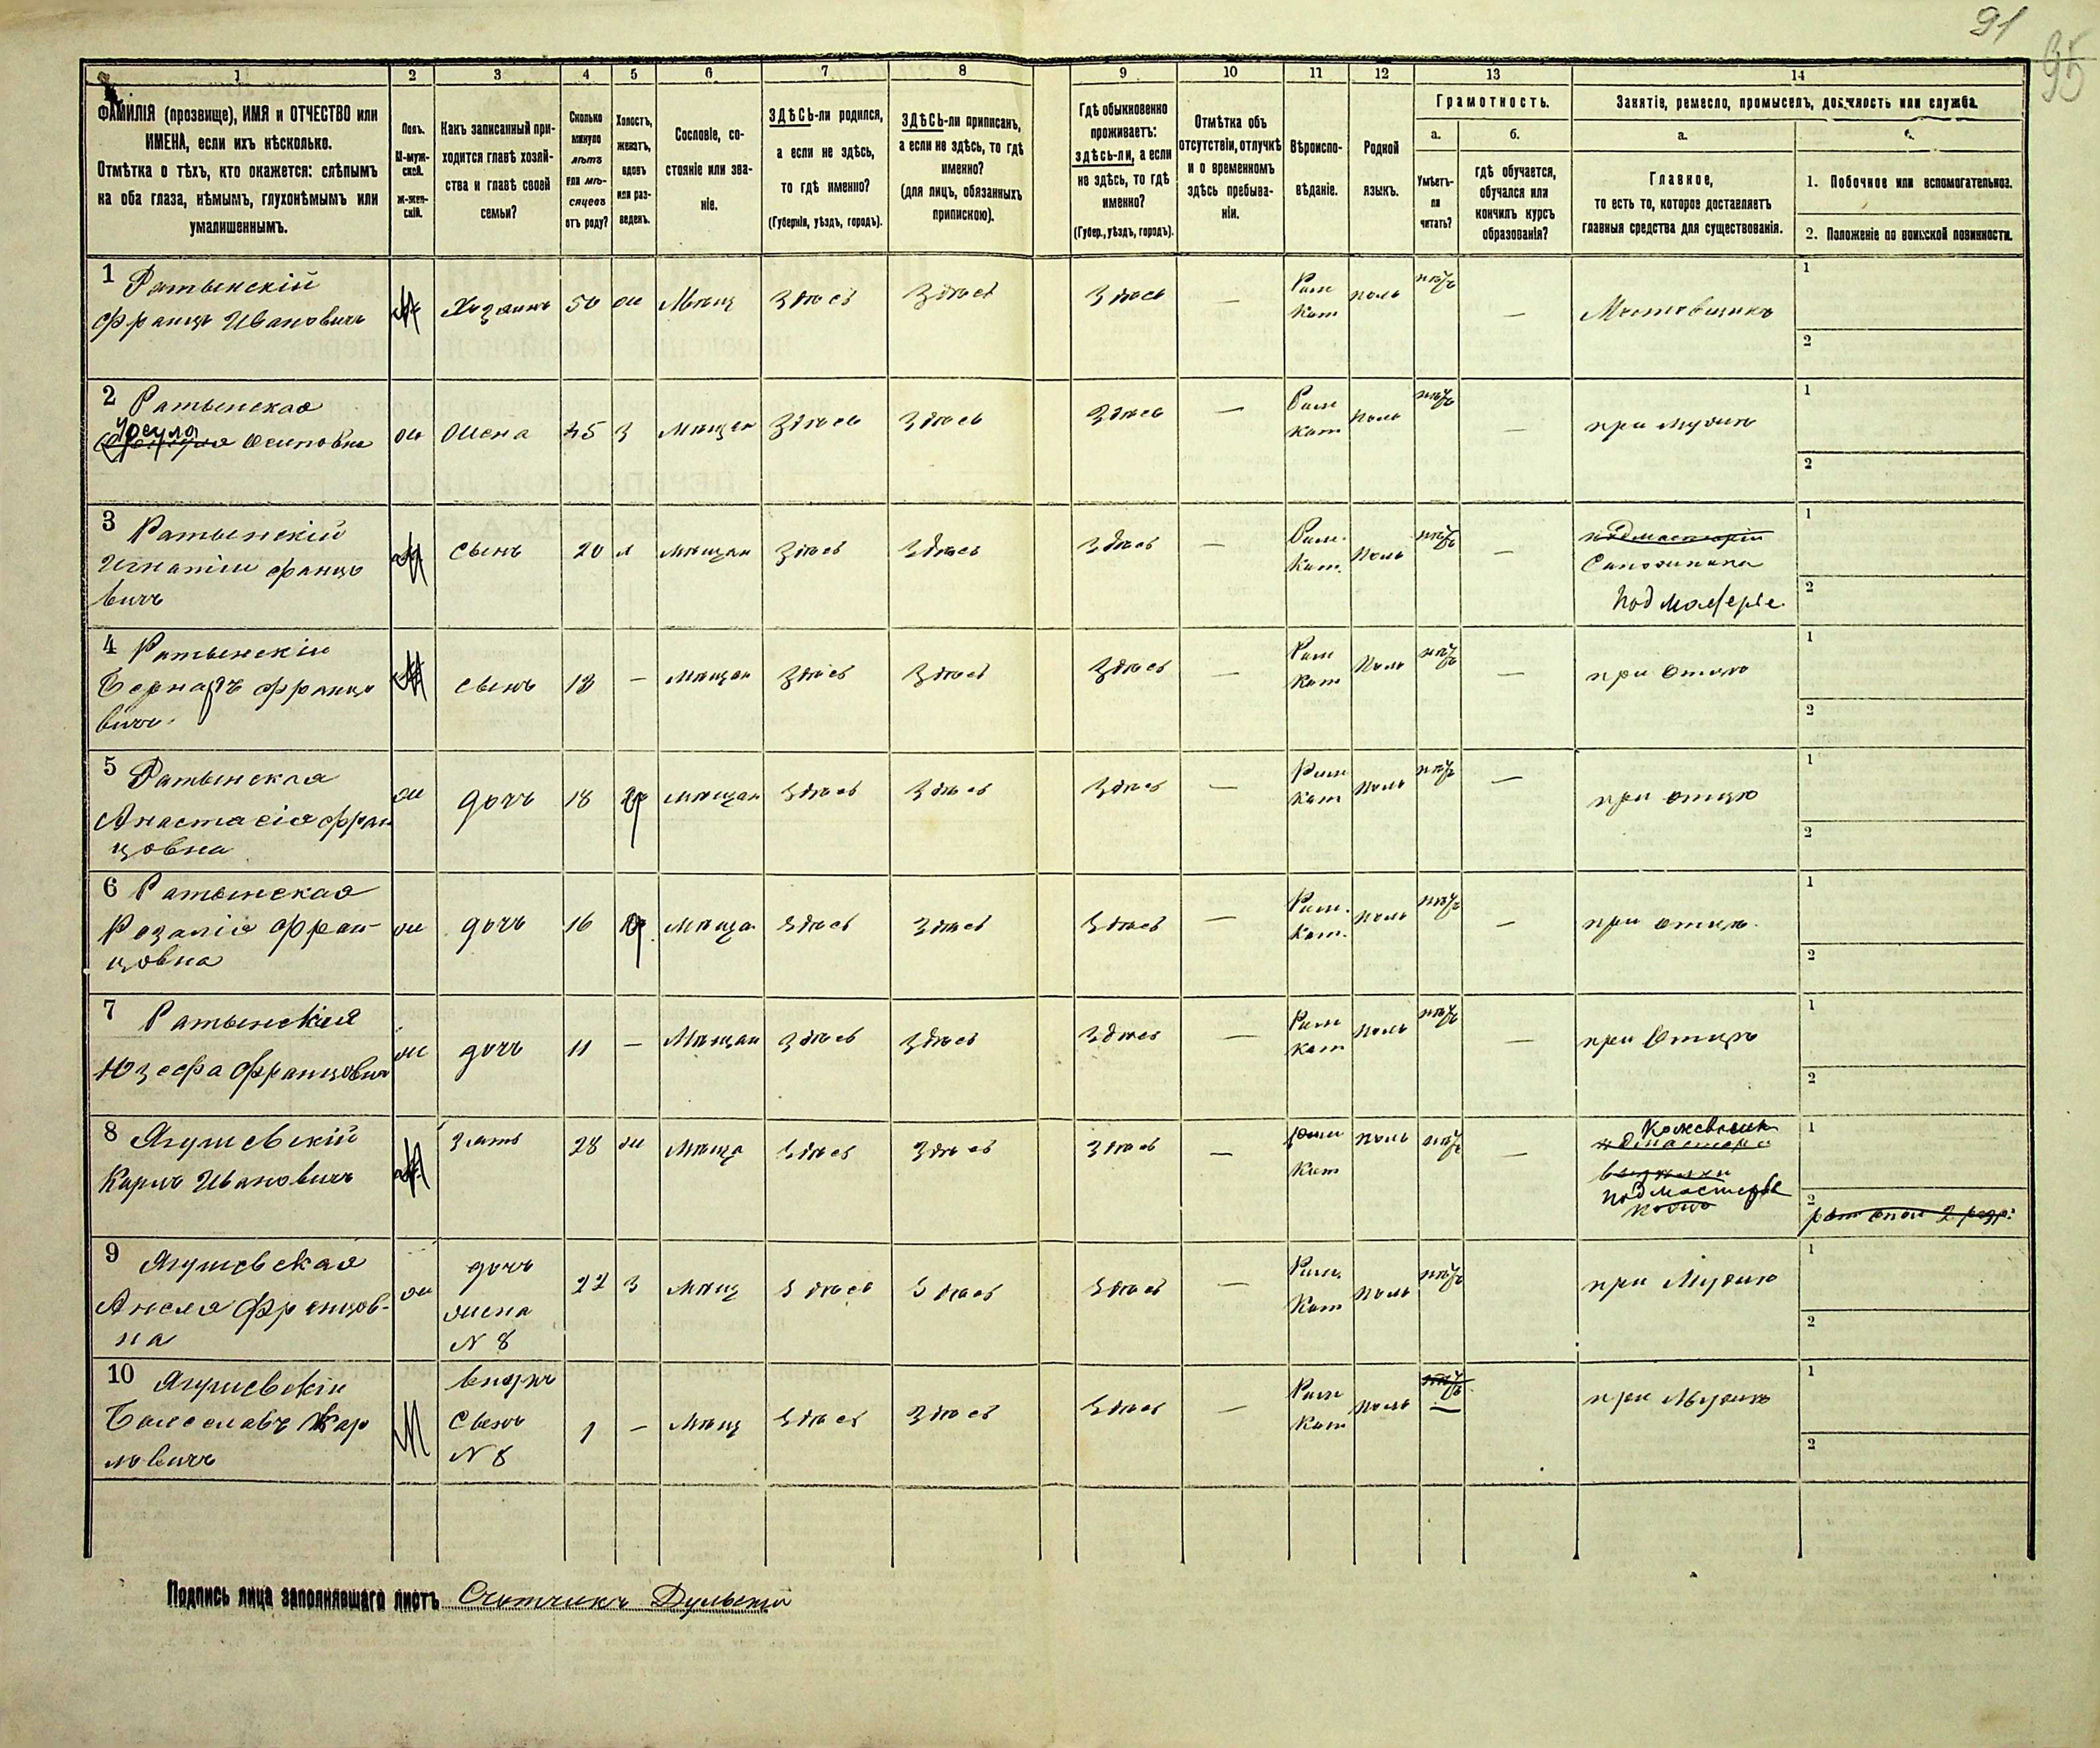 91
95
1 2 3 4 5 6 7 8 9 10 11 12 13 14
ФАМИЛІЯ (прозвище), ИМЯ и ОТЧЕСТВО или
ИМЕНА, если ихъ нѣсколько.
Отмѣтка о тѣхъ, кто окажется: слѣпымъ
на оба глаза, нѣмымъ, глухонѣмымъ или
умалишеннымъ.
Полъ.
М-муж-
ской.
ж-жен-
скій.
Какъ записанный при-
ходится главѣ хозяй-
ства и главѣ своей
семьи?
Сколько
минуло
лѣтъ
или мѣ-
сяцевъ
отъ роду?
Холостъ,
женатъ,
вдовъ
или раз-
веденъ.
Сословіе, со-
стояніе или зва-
ніе.
ЗДѢСЬ-ли родился,
а если не здѣсь,
то гдѣ именно?
(Губернія, уѣздъ, городъ).
ЗДѢСЬ-ли приписанъ,
а если не здѣсь, то гдѣ
именно?
(для лицъ, обязанныхъ
припискою).
Гдѣ обыкновенно
проживаетъ:
здѣсь-ли, а если
не здѣсь, то гдѣ
именно?
(Губер., уѣздъ, городъ).
Отмѣтка объ
отсутствіи, отлучкѣ
и о временномъ
здѣсь пребыва-
ніи.
Вѣроиспо-
вѣданіе.
Родной
языкъ.
Грамотность.
а.
Умѣетъ-
ли
читать?
б.
гдѣ обучается,
обучался или
кончилъ курсъ
образованія?
Занятіе, ремесло, промыселъ, должность или служба.
а.
Главное,
то есть то, которое доставляетъ
главныя средства для существованія.
1. Побочное или вспомогательное.
2. Положеніе по воинской повинности.
1 Ратынскій
Францъ Ивановичъ
М Хозяинъ 50 ж Мѣщ Здѣсь Здѣсь Здѣсь — Рим Кат поль нѣтъ — Мостовщикъ 1 2
2 Ратынская
Урсула Осиповна
ж Жена 45 З Мѣщан Здѣсь Здѣсь Здѣсь — Рим Кат Поль нѣтъ — при мужѣ 1 2
3 Ратынскій
Игнатій Францо
вичъ
М Сынъ 20 Мѣщан Здѣсь Здѣсь Здѣсь — Рим. Кат. Поль нѣтъ —
подмастерій
Сапожника
Подмастерье
1 2
4 Ратынскій
Бернардъ Францо
вичъ
М Сынъ 13 — Мѣщан Здѣсь Здѣсь Здѣсь — Рим Кат Поль нѣтъ — при отцѣ 1 2
5 Ратынская
Анастасія Фран
цовна
ж дочь 18 Мѣщан Здѣсь Здѣсь Здѣсь — Рим Кат поль нѣтъ — при отцѣ 1 2
6 Ратынская
Розалія Фран-
цовна
ж дочь 16 Мѣща Здѣсь Здѣсь Здѣсь — Рим. Кат. поль нѣтъ — при отцѣ. 1 2
7 Ратынская
Юзефа Францовна
ж дочь 11 — Мѣщан Здѣсь Здѣсь Здѣсь — Рим Кат поль нѣтъ — при Отцѣ 1 2
8 Ягушевскій
Карлъ Ивановичъ
М Зять 28 ж Мѣща Здѣсь Здѣсь Здѣсь — Рим Кат поль нѣтъ —
Кожевник
подмастерье
1 2
9 Ягушевская
Анеля Францов-
на
ж
дочь
жена
N 8
22 З Мѣщ Здѣсь Здѣсь Здѣсь — Рим. Кат поль нѣтъ при Мужѣ 1 2
10 Ягушевскій
Болеславъ Кар
ловичъ
М
внукъ
Сынъ
N 8
1 — Мѣщ Здѣсь Здѣсь Здѣсь — Рим Кат поль нѣтъ — при Мужѣ 1 2
Подпись лица заполнявшаго листъ Счетчикъ Дульскій